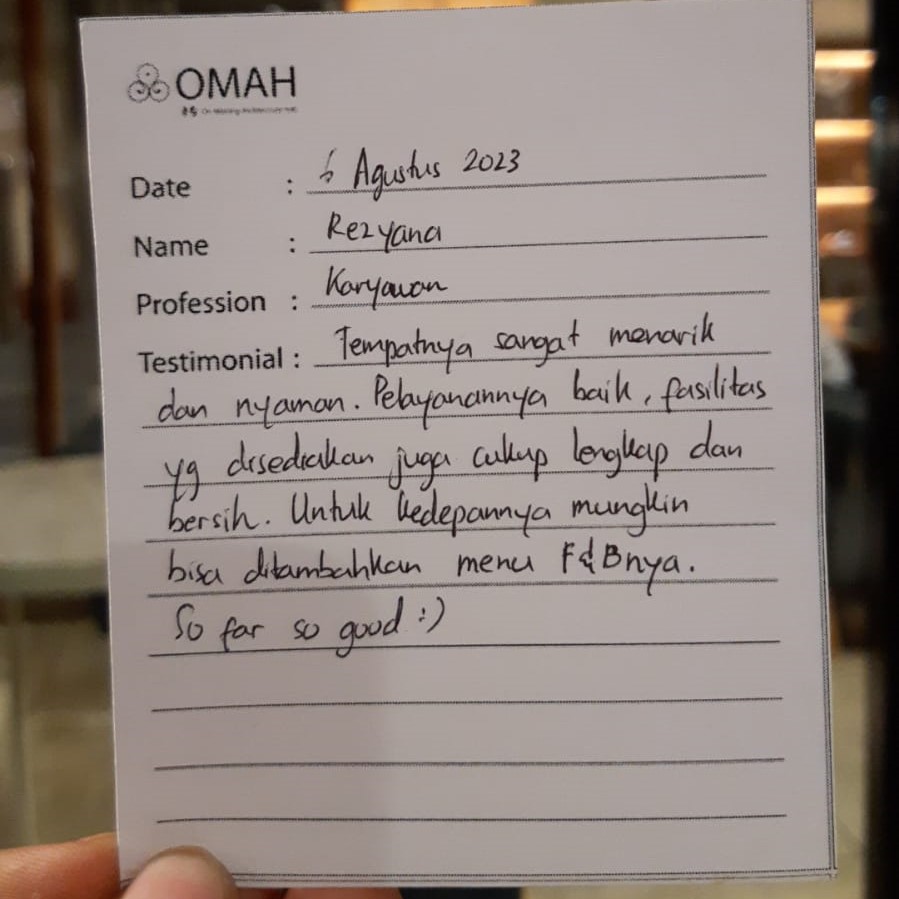 OMAH
Date : 6 Agustus 2023
Name : Rezyana
Profession : Karyawan
Testimonial : Tempatnya sangat menarik
dan nyaman. Pelayanannya baik, fasilitas
yg disediakan juga cukup lengkap dan
bersih. Untuk kedepannya mungkin
bisa ditambahkan menu F&Bnya.
So far so good :)